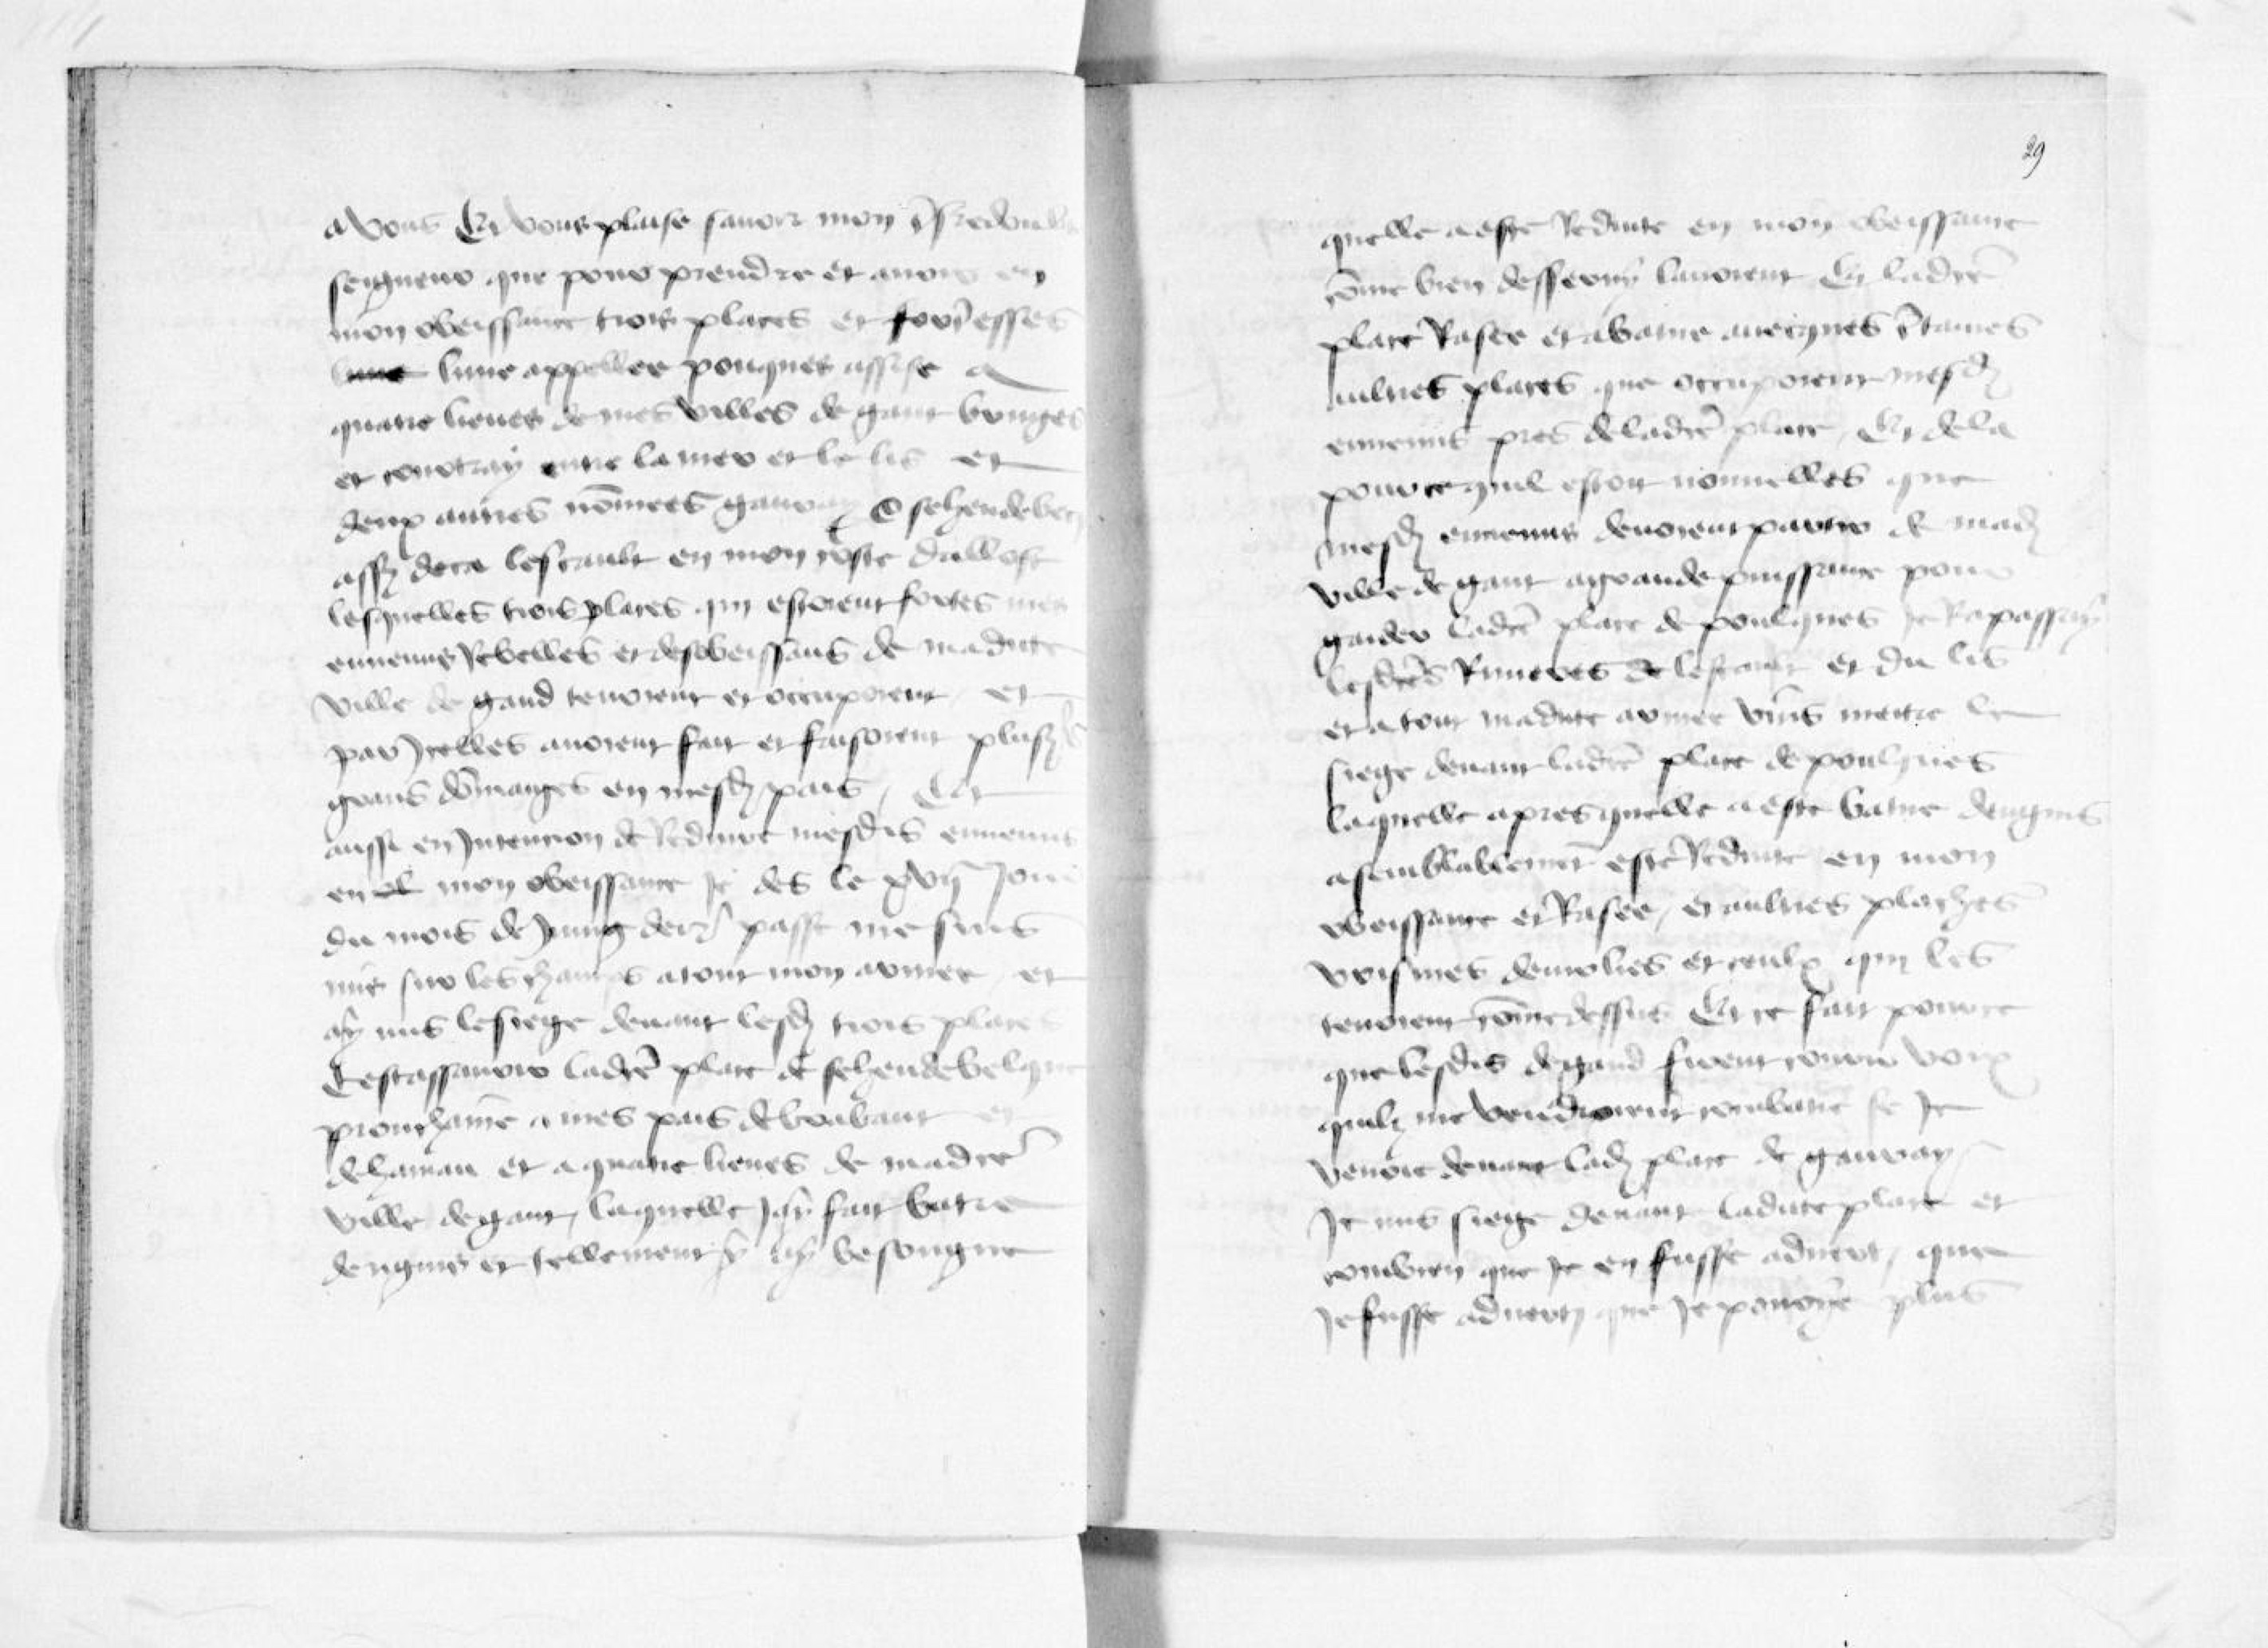 a vous Et vous plaise savoir mon tsredoubte
seigneur que pour prendre et avoir en
mon obeissance trois places et forteresses
lune appellee pouques assise a
quatre lieues de mes villes de gant bruges
et courtray entre la mer et le lis et
deux autres nommees gavre et schendebecq
assez deca lescault en mon conte dallost
lesquelles trois places qui estoient fortes mes
ennemis Rebelles et desobeissans de madicte
ville de gand tenoient et occupoient et
par Icelles avoient fait et faisoient plusrs
grans dommages en mesdis pais / Et
aussi en Intencion de Reduire mesdis ennemis
en mon obeissance Je des le xviie Jour
du mois de Juing derr passe me suis
mis sur les champs a tout mon armee / et
ay mis le siege devant lesdis trois places
Cestassavoir ladicte place de schendebelque
prouchaine a mes pais de brabant et
de haynau et a quatre lieues de madicte
ville de gant / laquelle Jay fait batre
dengins et tellement y ay besongne
29
quelle a este Reduite en mon obeissance
comme bien desservy lavoient Et ladicte
place Rasee et abatue avecques certaines
aultres places que occupoient mesdis
ennemis pres de ladicte place / Et de la
pour ce quil estoit nouvelles que
mesdis ennemis devoient partir de madicte
ville de gant a grande puissance pour
garder ladicte place de poulques Je Rapassay
lesdictes Rivieres de lescault et du lis
et a tout madicte armee vins mettre le
siege devant ladicte place de poulques
laquelle apres quelle a este batue dengins
a semblablement este Reduite en mon
obeissance et Rasee / et aultres places
voisines demolies et ceulx qui les
tenoient comme dessus Et ce fait pour ce
que lesdis de gand firent courir voix
quilz me vendroient combatre se Je
venoie devant ladicte place de gavre
Je mis siege devant ladicte place et
combien que Je en fusse adverti / que
Je fusse adverty que Je povoye plus